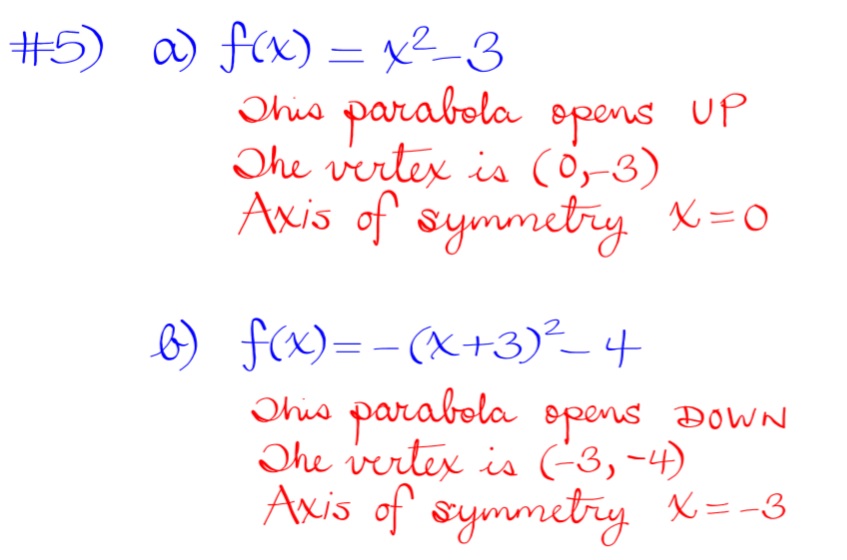 #5) a) f(x) = x²-3
This parabola opens UP
The vertex is (0,-3)
Axis of symmetry x=0
b) f(x)= -(x+3)²-4
This parabola opens DOWN
The vertex is (-3,-4)
Axis of symmetry x=-3